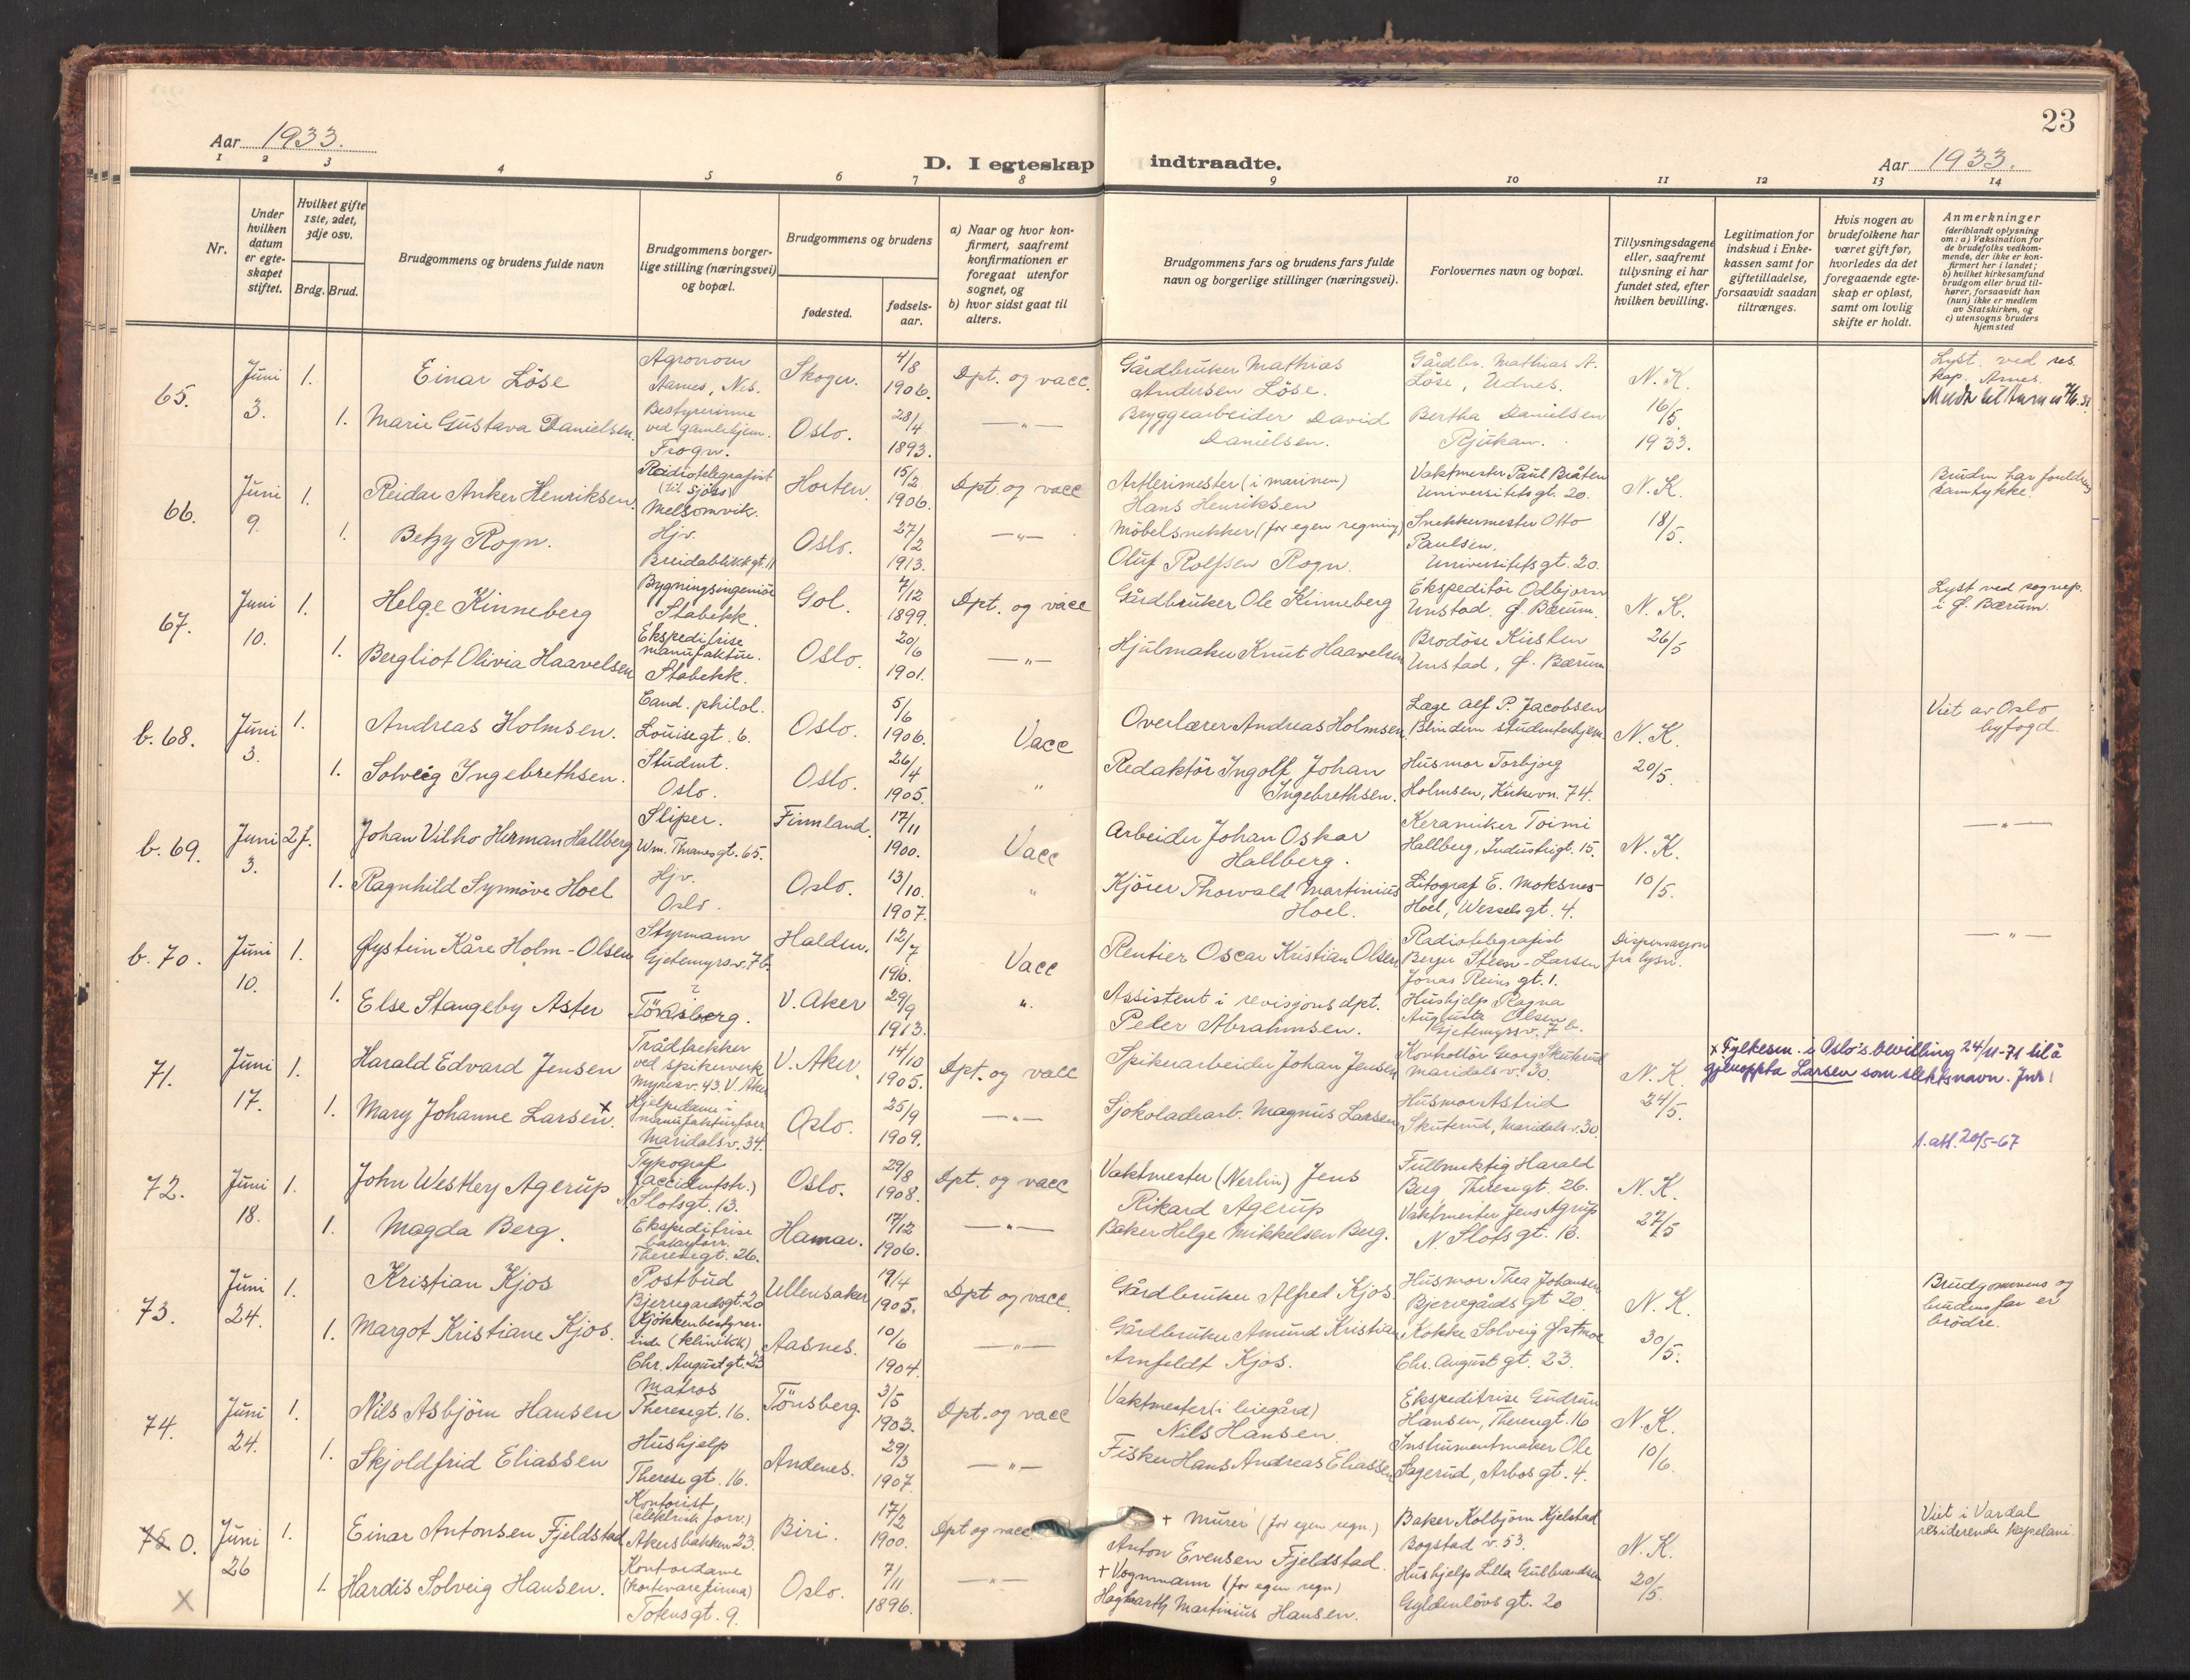 23
Aar 1933.
D. I egteskap indtraadte.
Aar 1933.
1 2 3 4 5 6 7 8 9 10 11 12 13 14
Nr.
Under hvilken datum er egteskapet stiftet.
Hvilket gifte 1ste, 2det, 3dje osv.
Brdg. Brud.
Brudgommens og brudens fulde navn
Brudgommens borgerlige stilling (næringsvei) og bopæl.
Brudgommens og brudens
fødested.
fødselsaar.
a) Naar og hvor konfirmert, saafremt konfirmationen er foregaat utenfor sognet, og
b) hvor sidst gaat til alters.
Brudgommens fars og brudens fars fulde navn og borgerlige stillinger (næringsvei).
Forlovernes navn og bopæl.
Tillysningsdagene eller, saafremt tillysning ei har fundet sted, efter hvilken bevilling.
Legitimation for indskud i Enkekassen samt for giftetilladelse, forsaavidt saadan tiltrænges.
Hvis nogen av brudefolkene har været gift før, hvorledes da det foregaaende egteskap er opløst, samt om lovlig skifte er holdt.
Anmerkninger
(deriblandt oplysning om: a) Vaksination for de brudefolks vedkommende, der ikke er konfirmert her i landet;
b) hvilket kirkesamfund brudgom eller brud tilhører, forsaavidt han (hun) ikke er medlem av Statskirken, og
c) utensogns bruders hjemsted
65. Juni 3. 1. Einar Löse Agronom Aarnes, Nes. Skoger. 4/8 1906. Dpt. og vacc. Gårdbruker Mathias Andersen Löse. Gårdbr. Mathias A. Löse, Udnes. N.K. 16/5. 1933. Lyst. ved res. kap. Arnes.
1. Marie Gustava Danielsen. Bestyrerinne ved gamlehjem. Frogn. Oslo. 28/4 1893. —"— Bryggearbeider David Danielsen. Bertha Danielsen Rjukan.
66. Juni 9. 1. Reidar Anker Henriksen. Radiotelegrafist (til sjöss) Melsomvik. Horten. 15/2 1906. Dpt. og vacc Artlerimester (i marinen) Hans Henriksen Vaktmester Paul Bråten Universitetsgt. 20. N.K. 18/5. Bruden har foreldres samtykke.
1. Betzy Rogn. Hjv. Breidablikkgt. 11 Oslo. 27/2 1913. —"— Möbelsnekker (for egen regning) Oluf Rolfsen Rogn. Snekkermester Otto Paulsen, Universitetsgt. 20.
67. Juni 10. 1. Helge Kinneberg Bygningsingeniör Stabekk. Gol. 7/12 1899. Dpt. og vacc Gårdbruker Ole Kinneberg Ekspeditör Odbjorn Unstad. Ø. Bærum. N.K. 26/5 Lyst ved sognep. i Ø. Bærum.
1. Bergliot Olivia Haavelsen Ekspeditrise manufaktur. Stabekk. Oslo. 20/6 1901. —"— Hjulmaker Knut Haavelsen Brodöse Kirsten Unstad, Ø. Bærum
b. 68. Juni 3. 1. Andreas Holmsen. Cand. philol. Louisegt. 6. Oslo. 5/6 1906. Vacc Overlærer Andreas Holmsen. Læge Alf P. Jacobsen Blindern studenterhjem. N.K. 20/5. Viet av Oslo byfogd.
1. Solveig Ingebrethsen. Student. Oslo. Oslo. 26/4 1905. " Redaktör Ingolf Johan Ingebrethsen. Husmor Torbjorg Holmsen, Kirkevn. 74.
b. 69. Juni 3. 2 f. Johan Vilho Herman Hallberg Sliper. Wm. Thranes gt. 65. Finnland. 17/11 1900. Vacc Arbeider Johan Oskar Hallberg. Keramiker Toimi Hallberg, Industrigt. 15. N.K. 10/5. —"—
1. Ragnhild Synnöve Hoel Hjv. Oslo. Oslo. 13/10. 1907. " Kjörer Thorvald Martinius Hoel. Litograf E. Moksnes Hoel, Wesselsgt. 4.
b. 70. Juni 10. 1. Øystein Kåre Holm-Olsen Styrmann Gjetemyrsv. 7b. Halden. 12/7 1910. Vacc Rentier Oscar Kristian Olsen Radiotelegrafist Berger Steen-Larsen Jonas Reins gt. 1. Dispensasjon fra lysn. —"—
1. Else Stangeby Aster Tönsberg. V. Aker 29/9 1913. ". Assistent i revisjonsdpt. Peder Abrahmsen. Hushjelp Ragna Augusta Olsen Gjetemyrsv. 7 b.
71. Juni 17. 1. Harald Edvard Jensen Trådtrekker ved spikerverk Myrersv. 43. V. Aker V. Aker. 14/10 1905. Dpt. og vacc Spikerarbeider Johan Jensen Kontrollör Georg Skuterud Maridalsv. 30. N.K. 24/5. x Fylkesm. i Oslo's bevilling 24/11-71 til å gjenoppta Larsen som slektsnavn.
1. Mary Johanne Larsen.x Hjelpedame i manufakturforr. Maridalsv. 34. Oslo. 25/9 1909. —"— Sjokoladearb. Magnus Larsen Husmor Astrid Skuterud, Maridalsv. 30. 1. att. 20/5-67
72. Juni 18. 1. John Westley Agerup Typograf N. Slotsgt. 13. Oslo. 29/8 1908. Dpt. og vacc Vaktmester Jens Rikard Agerup Fullmektig Harald Berg, Theresegt. 26. N.K. 27/5
1. Magda Berg. Ekspeditrise Theresegt. 26. Hamar. 17/12 1906. —"— Baker Helge Mikkelsen Berg. Vaktmester Jens Agrup N. Slotsgt. 13.
73. Juni 24. 1. Kristian Kjos Postbud Bjerregardsgt. 20 Ullensaker 19/4 1905. Dpt og vacc. Gårdbruker Alfred Kjos. Husmor Thea Johansen Bjerregårdsgt 20. N.K. 30/5. Brudgommens og brudens far er brödre.
1. Margot Kristiane Kjos. Kjökkenbestyrerinde (klinikk) Chr. Augustgt. 23 Aasnes. 10/6 1904. —"— Gårdbruker Amund Kristian Arnfeldt Kjos. Kokke Solveig Østmoe Chr. August gt. 23.
74. Juni 24. 1. Nils Asbjörn Hansen Matros Theresegt. 16. Tönsberg. 3/5 1903. Dpt. og vacc Vaktmester (i leiegård) Nils Hansen. Ekspeditrise Gudrun Hansen, Theresegt. 16 N.K. 10/6.
1. Skjoldfrid Eliassen Hushjelp Therese gt. 16. Andenes. 29/3 1907. —"— Fisker Hans Andreas Eliassen Instrumentmaker Ole Sagerud, Arbos gt. 4.
75 0. Juni 26 1. Einar Antonsen Fjeldstad Kontorist, (elektrisk forr.) Akersbakken 23. Biri. 17/2 1900. Dpt og vacc + Murer (for egen regn.) Anton Evensen Fjeldstad. Baker Kolbjörn Kjelstad Bogstad v. 53. N.K. 20/5. Viet i Vardal residerende kapelani.
X 1. Hardis Solveig Hansen. Kontordame (kortevarefirma) Totensgt. 9. Oslo. 7/11 1896. —"— + Vognmann (for egen regn) Hagbarth Martinius Hansen. Hushjelp Lilla Gulbrandsen Gyldenlövsgt. 20